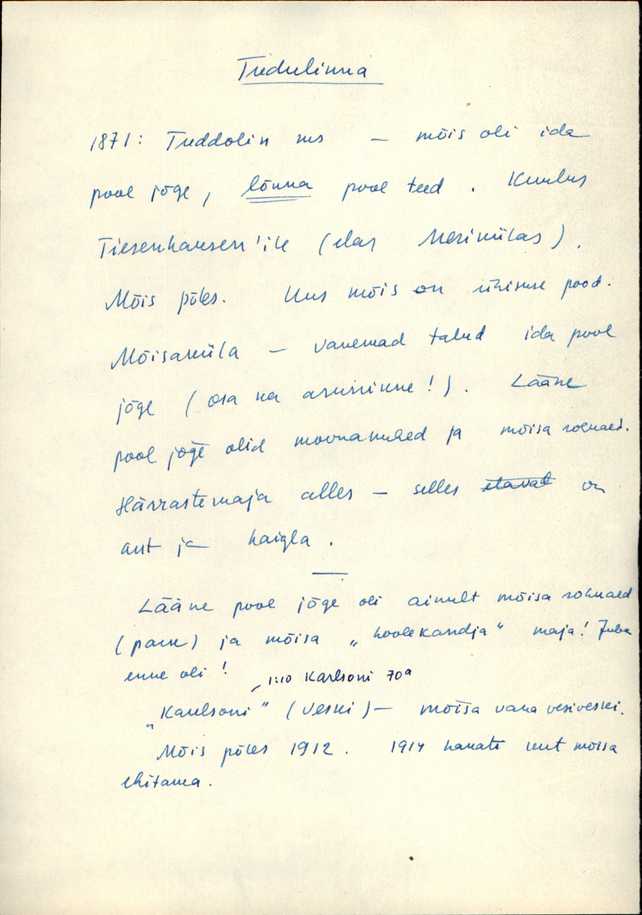 Tudulinna
1871: Tuddolin ms — mõis oli ida
pool jõge, lõuna pool teed. Kuulus
Tiesenhausen'ile (elas Merikülas).
Mõis põles. Uus mõis on ühisuse pood.
Mõisaküla — vanemad talud ida pool
jõge (osa ka asunikud!). Lääne
pool jõge olid moonamehed ja mõisa rohuaed.
Härrastemaja alles — selles elavat on
amt ja haigla.
Lääne pool jõge oli ainult mõisa rohuaed
(park) ja mõisa „hoolekandja" maja! Juba
enne oli!
1:10 Karlsoni 70ª
„Karlsoni" (veski) — mõisa vana vesiveski.
Mõis põles 1912. 1914 hakati uut mõisa
ehitama.